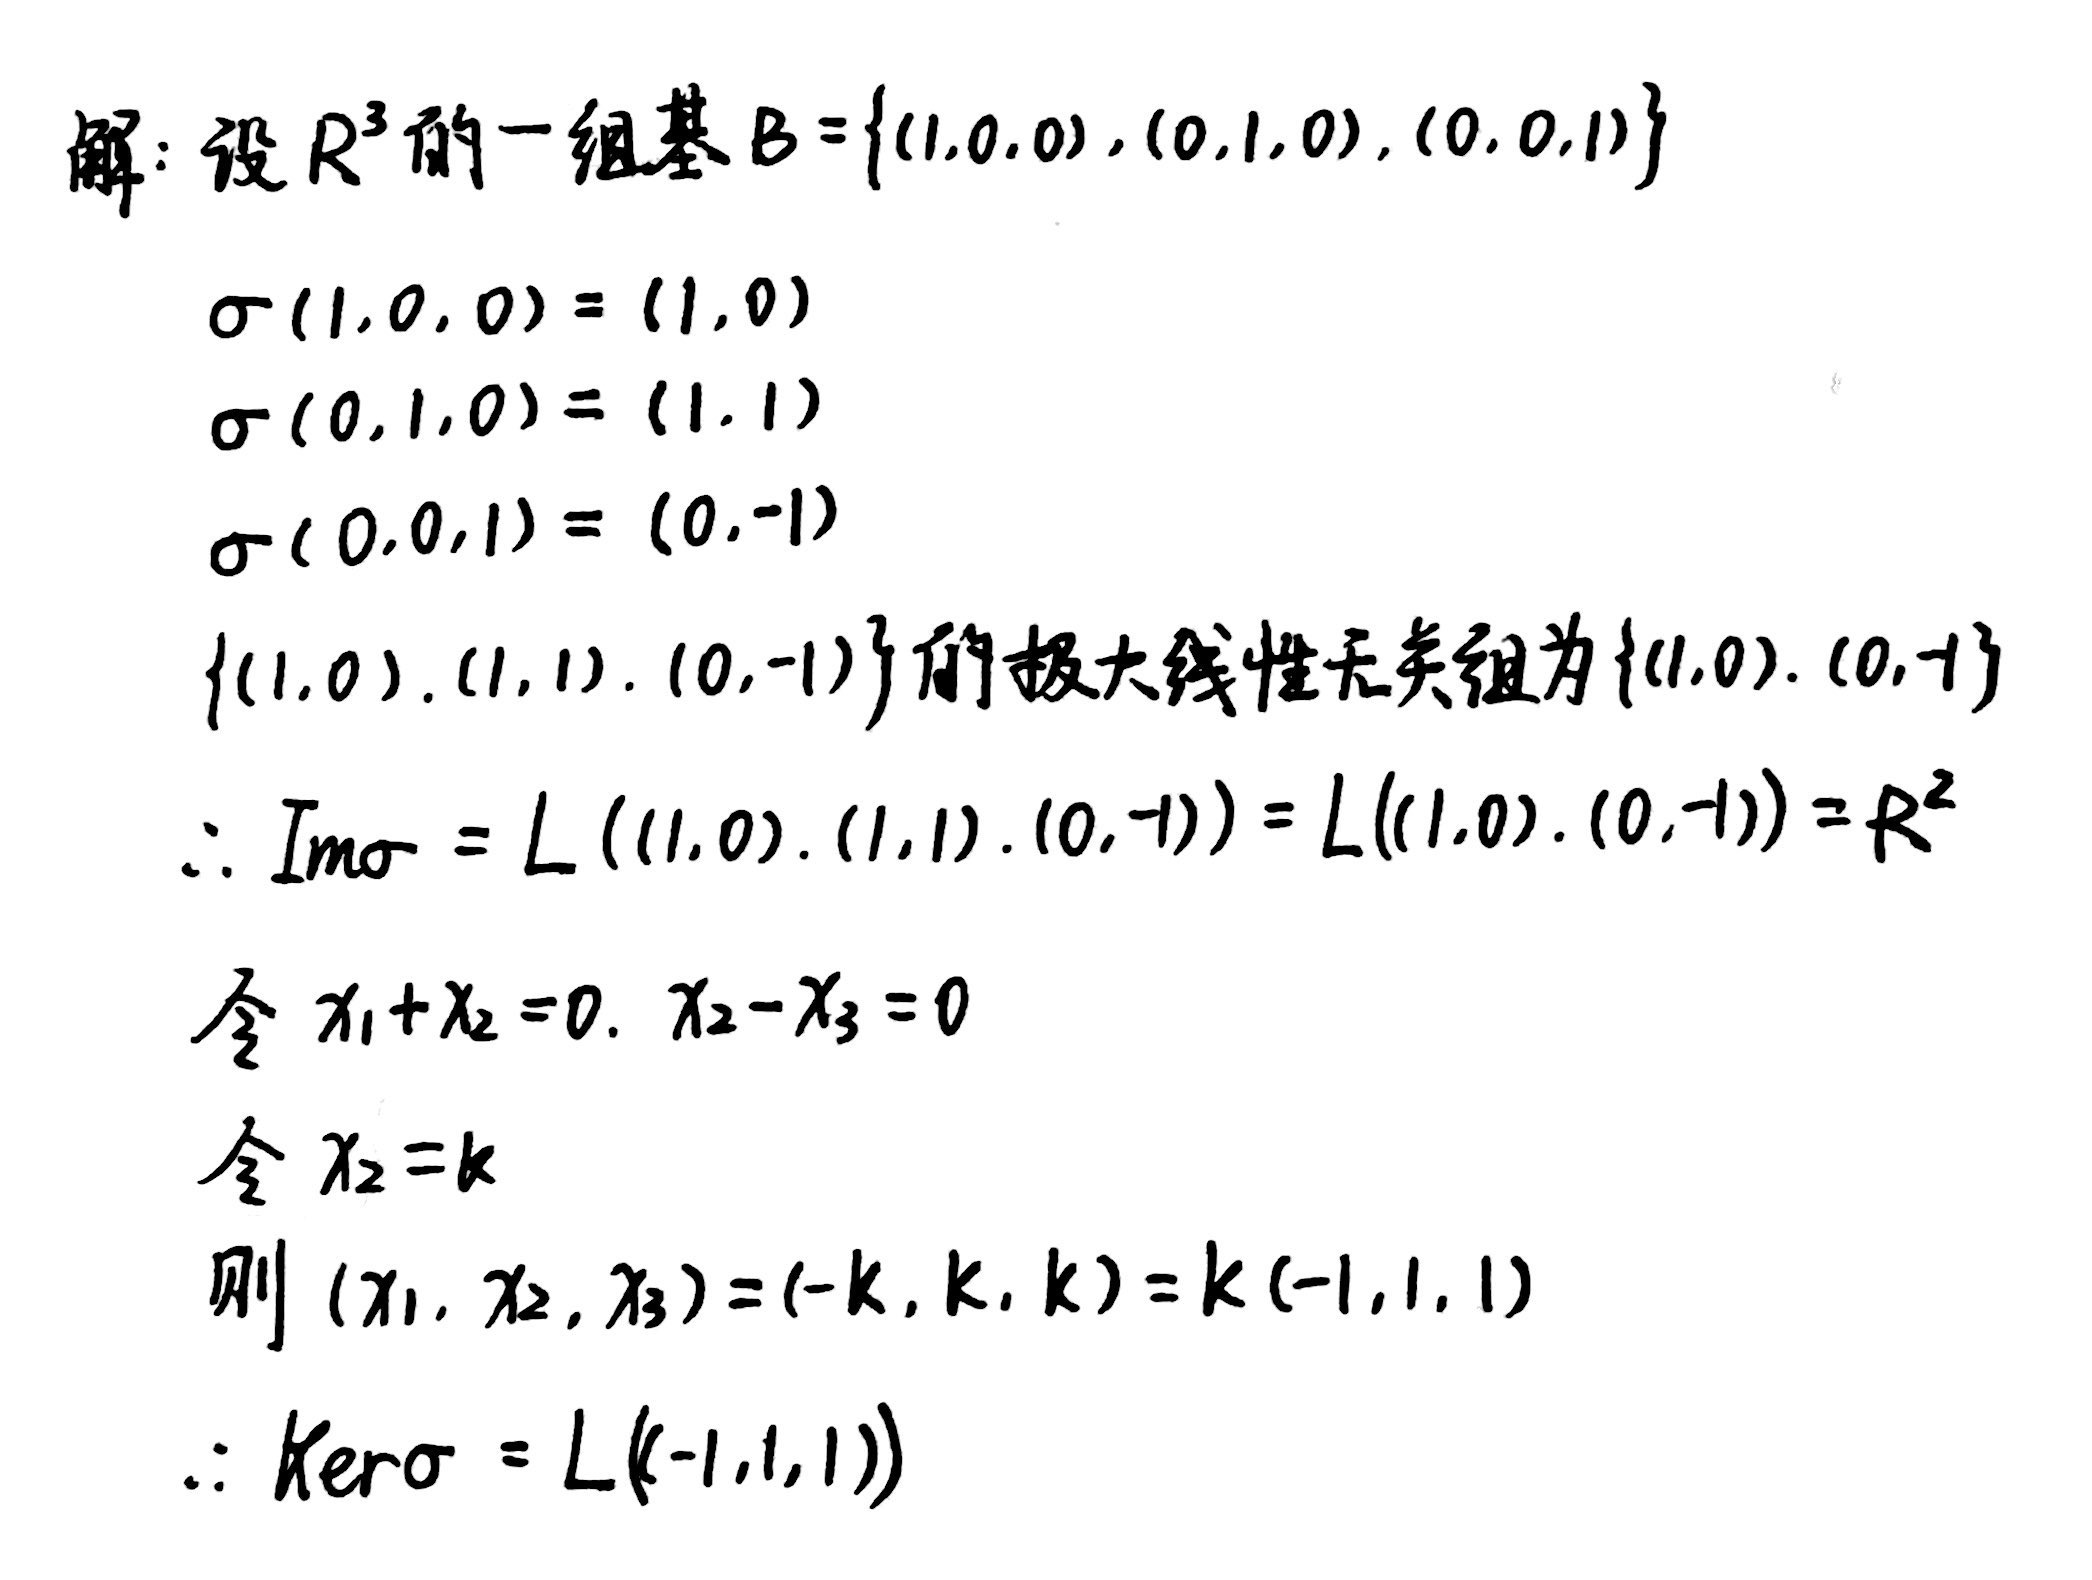 解：设 R³ 的一组基 B = {(1,0,0), (0,1,0), (0,0,1)}
σ(1,0,0) = (1,0)
σ(0,1,0) = (1,1)
σ(0,0,1) = (0,-1)
{(1,0).(1,1).(0,-1)} 的极大线性无关组为 {(1,0).(0,-1}
∴ Imσ = L((1,0).(1,1).(0,-1)) = L((1,0).(0,-1)) = R²
令 x₁+x₂=0. x₂-x₃=0
令 x₂=k
则 (x₁, x₂, x₃) = (-k, k, k) = k(-1,1,1)
∴ Kerσ = L((-1,1,1))